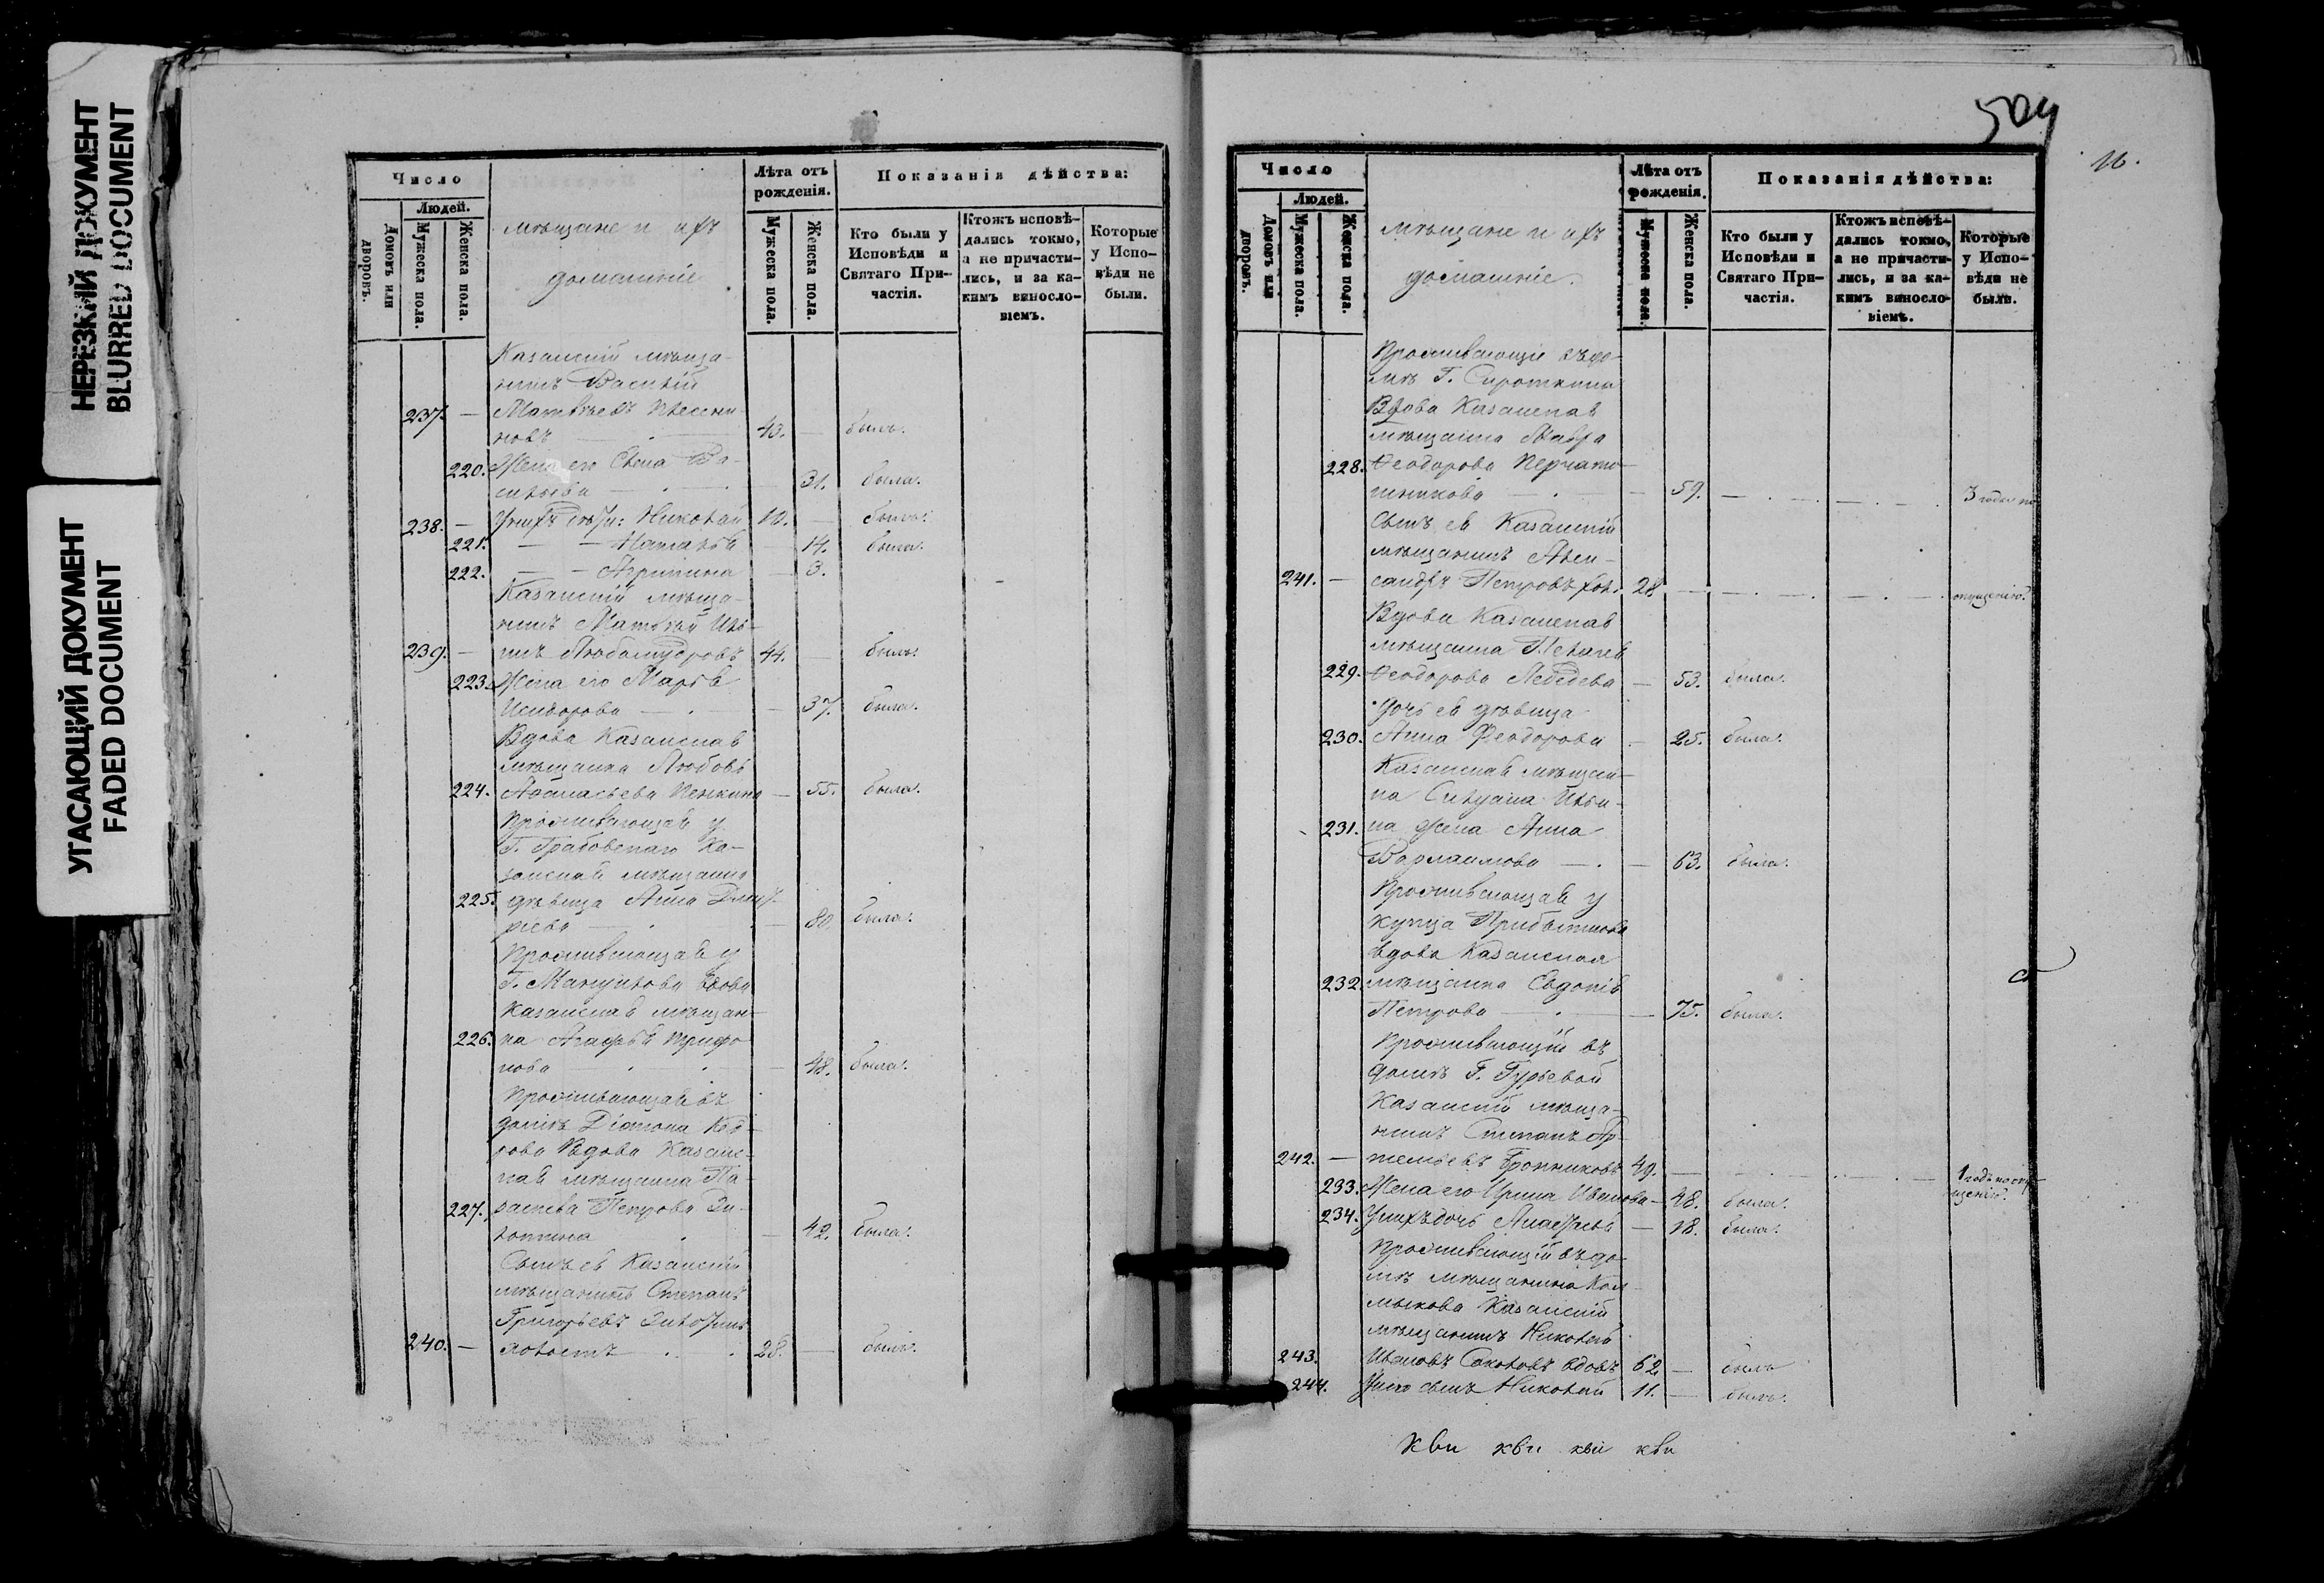 НЕРЕЗКИЙ ДОКУМЕНТ
BLURRED DOCUMENT
УГАСАЮЩИЙ ДОКУМЕНТ
FADED DOCUMENT
Число
Людей.
Домовъ или дворовъ.
Мужеска пола.
Женска пола.
мѣщане и ихъ
домашніе
Лѣта отъ рожденія.
Мужеска пола.
Женска пола.
Показанія дѣйства:
Кто были у Исповѣди и Святаго Причастія.
Ктожъ исповѣдались токмо, а не причастились, и за какимъ винословіемъ.
Которые у Исповѣди не были.
Казанскій мѣща-
нинъ Василій
237. — Матвѣевъ
новъ — 43. — былъ.
220. Жена его Ва-
сильева — 31. была.
238. — Николай 10. — былъ.
221. — — Наталья — 14. была.
222. — — Агрипина — 3.
Казанскій мѣща-
нинъ Матвѣй Иль-
239. — инъ Любомудровъ 44. — былъ.
223. Жена его Марья
Исидорова — 37. была.
Вдова Казанская
мѣщанка Любовь
224. Аѳанасьева — 55. была.
Проживающая у
Г. Грабовскаго Ка-
занская мѣщанка
225. дѣвица Анна Дмит-
ріева — 80. была.
Проживающая у
Г. Вдова
Казанская мѣщан-
226. ка Агафья Трифо-
нова — 48. была.
Проживающая въ
домѣ Діакона Кед-
рова Вдова Казанс-
кая мѣщанка Па-
227. раскева Петрова
42. была.
Сынъ ея Казанскій
мѣщанинъ Степанъ
Григорьевъ
240. — 28. — былъ.
504
16.
Число
Людей.
Домовъ или дворовъ.
Мужеска пола.
Женска пола.
мѣщане и ихъ
домашніе.
Лѣта отъ рожденія.
Мужеска пола.
Женска пола.
Показанія дѣйства:
Кто были у Исповѣди и Святаго Причастія.
Ктожъ исповѣдались токмо, а не причастились, и за какимъ винословіемъ.
Которые у Исповѣди не были.
Проживающіе въ до-
мѣ Г. Сироткина
Вдова Казанская
мѣщанка Мавра
228. Ѳеодорова Перчато-
шникова — 59. — 3 года по
Сынъ ея Казанскій
мѣщанинъ Алек-
241. — сандръ Петровъ хол. 28 — опущенію.
Вдова Казанская
мѣщанка Пелагея
229. Ѳеодорова Лебедева — 53. была.
Дочь ея дѣвица
230. Анна Феодорова — 25. была.
Казанская мѣщан-
ка Ильи-
231. на жена Анна
Варлаамова — 63. была.
Проживающая у
купца Прибыткова
вдова Казанская
232. мѣщанка Евдокія
Петрова — 75. была.
Проживающій въ
домѣ Г. Гурьевой
Казанскій мѣща-
нинъ Степанъ Ар-
242. — темьевъ 49. — 1 годъ по опу-
щенію.
233. Жена его Ирина Иванова — 48. была.
234. У нихъ дочь Анастасья — 18. была.
Проживающій въ до-
мѣ мѣщанина Кал-
мыкова Казанскій
мѣщанинъ Николай
243. Ивановъ Соколовъ вдовъ 62. — былъ
244. У него сынъ Николай 11. — былъ.